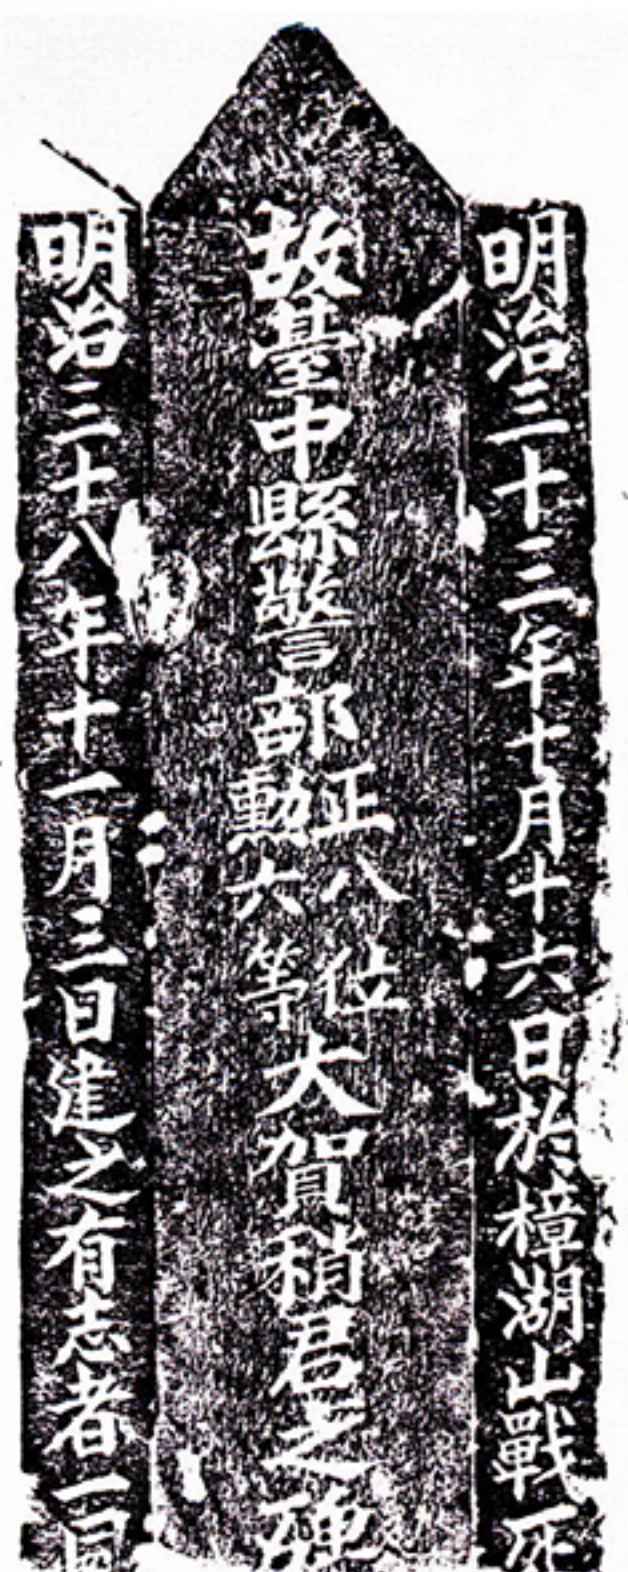 明治三十三年十月十六日於樟湖山戰死
故臺中縣警部正八位勳六等大賀稍君之碑
明治三十八年十一月三日建之有志者一同